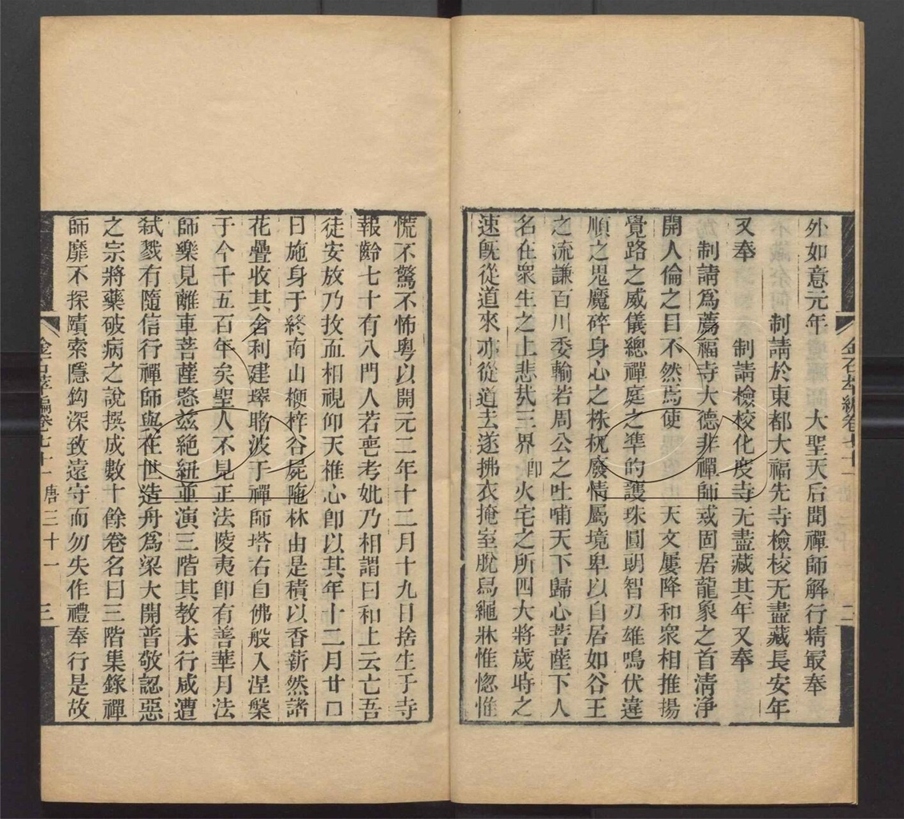 外如意元年　大聖天后聞禪師解行精最奉
制請於東都大福先寺檢校无盡藏長安年
又奉　制請檢校化度寺无盡藏其年又奉
制請爲薦福寺大德非禪師戒固居龍象之首清淨
開人倫之目不然焉使　天文屢降和衆相推揚
覺路之威儀總禪庭之準的護珠圓朗智刃雄鳴伏違
順之鬼魔碎身心之株杌廢情屬境卑以自居如谷王
之流謙百川委輸若周公之吐哺天下歸心菩薩下人
名在衆生之上悲哉三界卽火宅之所四大將歲時之
速旣從道來亦從道去遂拂衣掩室脫屣繩牀惟惚惟
金石萃編卷七十一
二
慌不驚不怖粤以開元二年十二月十九日捨生于寺
報齡七十有八門人若喪考妣乃相謂曰和上云亡吾
徒安放乃抆血相視仰天椎心卽以其年十二月廿口
日施身于終南山梗梓谷屍陁林由是積以香薪然諸
花疊收其舍利建塔波于禪師塔右自佛般入涅槃
于今千五百年矣聖人不見正法陵夷卽有善華月法
師樂見離車菩薩愍兹絶紐並演三階其教未行咸遭
弑戮有隨信行禪師與在世造舟爲梁大開普敬認惡
之宗將藥破病之說撰成數十餘卷名曰三階集錄禪
師靡不探賾索隱鈎深致遠守而勿失作禮奉行是故
金石萃編卷七十一　唐三十一
三